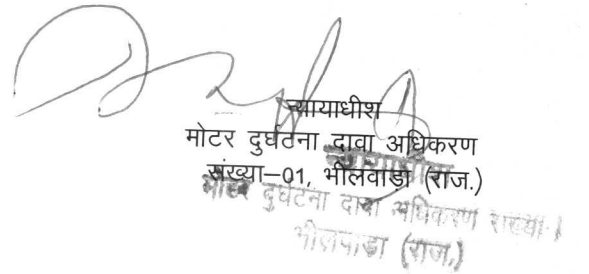 न्यायाधीश
मोटर दुर्घटना दावा अधिकरण
संख्या–01, भीलवाड़ा (राज.)
न्यायाधीश
मोटर दुर्घटना दावा अधिकरण संख्या-1
भीलवाड़ा (राज.)